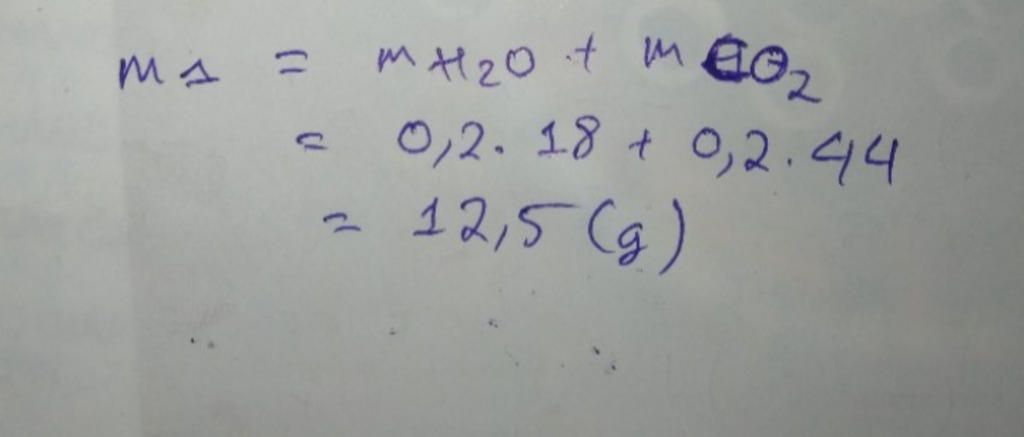 m1 = mH2O + mCO2
= 0,2. 18 + 0,2. 44
= 12,5 (g)